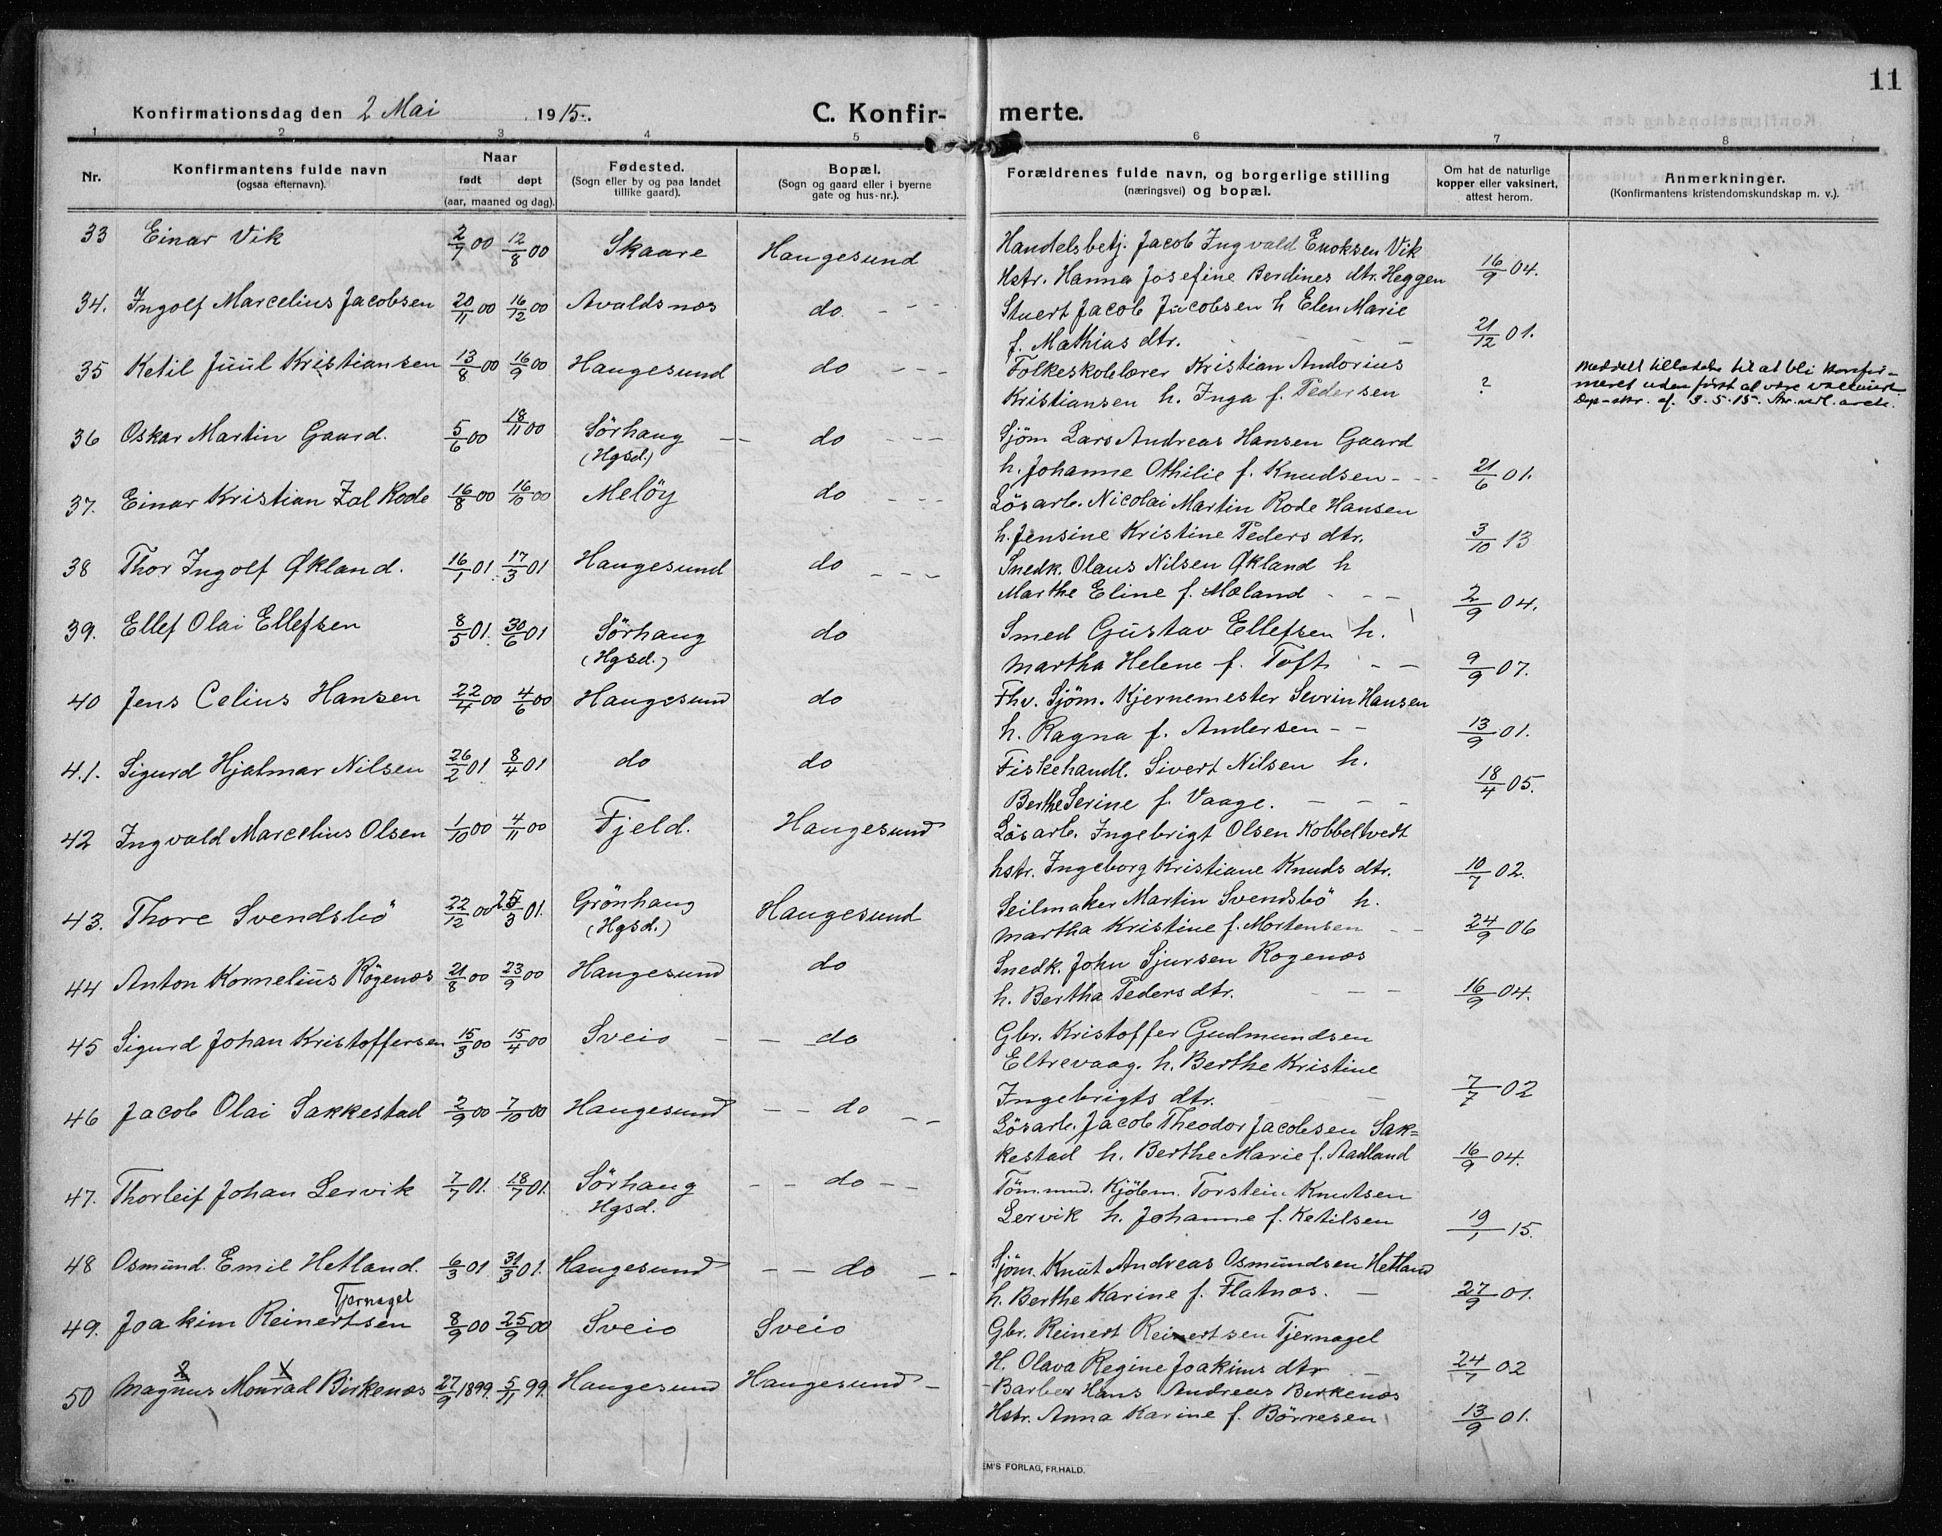 11
Konfirmationsdag den 2 Mai 1915.
C. Konfir- merte.
1 2 3 4 5 6 7 8
Nr.
Konfirmantens fulde navn
(ogsaa efternavn).
Naar
født døpt
(aar, maaned og dag).
Fødested.
(Sogn eller by og paa landet
tillike gaard).
Bopæl.
(Sogn og gaard eller i byerne
gate og hus-nr.).
Forældrenes fulde navn, og borgerlige stilling
(næringsvei) og bopæl.
Om hat de naturlige
kopper eller vaksinert,
attest herom.
Anmerkninger.
(Konfirmantens kristendomskundskap m. v.).
33 Einar Vik 2/7 00 12/8 00 Skaare Haugesund
Handelsbetj. Jacob Ingvald Enoksen Vik
Hstr. Hanna Josefine Berdines dtr. Heggen 16/9 04.
34. Ingolf Marcelius Jacobsen 20/11 00 16/12 00 Avaldsnæs do. - - -
Stuert Jacob Jacobsen h Elen Marie
f. Mathias dtr. - - - 21/12 01.
35 Ketil Juul Kristiansen 13/8 00 16/9 00 Haugesund do - - -
Folkeskolelærer Kristian Andorius
Kristiansen h. Inga f. Pedersen ?
Meddelt tilladelse til at bli konfir-
meret uden først at være vaccinert
Dep-skr. af 3.5.15.
36 Oskar Martin Gaard. 5/6 00 18/11 00 Sörhaug - - do - - -
(Hgsd.)
Sjöm Lars Andreas Hansen Gaard
h. Johanne Othilie f. Knudsen - - - 21/6 01.
37. Einar Kristian Zal Rode 16/8 00 16/10 00 Melöy do - - -
Lösarb. Nicolai Martin Rode Hansen
h. Jensine Kristine Peders dtr. 3/10 13
38 Thor Ingolf Økland. 16/1 01. 17/3 01 Haugesund do - - -
Snedk. Olaus Nilsen Økland h
Marthe Eline f. Mæland - - - 2/9 04.
39. Ellef Olai Ellefsen 8/5 01. 30/6 01 Sörhaug do
(Hgsd.)
Smed Gustav Ellefsen h.
Martha Helene f. Toft - - 9/9 07.
40 Jens Celius Hansen 22/4 00 4/6 00 Haugesund do
Fhv. Sjöm. Kjernemester Sevrin Hansen
h. Ragna f. Andersen - - 13/9 01.
41. Sigurd Hjalmar Nilsen 26/2 01 8/4 01 do do
Fiskehandl. Sivert Nilsen h.
Berthe Serine f. Vaage. - - - 18/4 05.
42 Ingvald Marcelius Olsen 1/10 00 4/11 00 Fjeld. Haugesund
Lösarb. Ingebrigt Olsen Kobbeltvedt
hstr. Ingeborg Kristiane Knuds dtr. 10/7 02.
43. Thore Svendsbö 22/12 00 25/3 01. Grönhaug Haugesund
(Hgsd.)
Seilmaker Martin Svendsbö h.
Martha Kristine f. Mortensen - - 24/9 06
44 Anton Kornelius Rögenæs 21/8 00 23/9 00 Haugesund do
Snedk. John Sjursen Rogenæs
h. Bertha Peders dtr. - - - 16/9 04.
45 Sigurd Johan Kristoffersen 15/3 00 15/4 00 Sveio - - do
Gbr. Kristoffer Gudmundsen
Eltrevaag. h. Berthe Kristine
Ingebrigts dtr. - - 7/7 02
46 Jacob Olai Sakkestad 2/9 00 7/10 00 Haugesund - - do - -
Lösarb. Jacob Theodor Jacobsen Sak=
kestad h. Berthe Marie f. Aadland 16/9 04.
47. Thorleif Johan Lervik 7/7 01. 18/7 01. Sörhaug - - do - -
Hgsd.
Töm.mnd. Kjöbm. Torstein Knutsen
Lervik h. Johanne f. Ketilsen 19/1 15.
48 Osmund. Emil Hetland. 6/3 01 31/3 01. Haugesund - - do - -
Sjöm. Knut Andreas Osmundsen Hetland
h. Berthe Karine f. Flatnæs. - 27/9 01.
Tjernagel
49. Joakim Reinertsen 8/9 00 25/9 00 Sveio Sveio
Gbr. Reinert Reinertsen Tjernagel
H. Olava Regine Joakims dtr - 24/7 02
50 Magnus Monrad Birkenæs 27/9 1899. 5/11 99. Haugesund Haugesund -
Barber Hans Andreas Berkenæs
Hstr. Anna Karine f. Börresen 13/9 01.
EM'S FORLAG, FR.HALD.